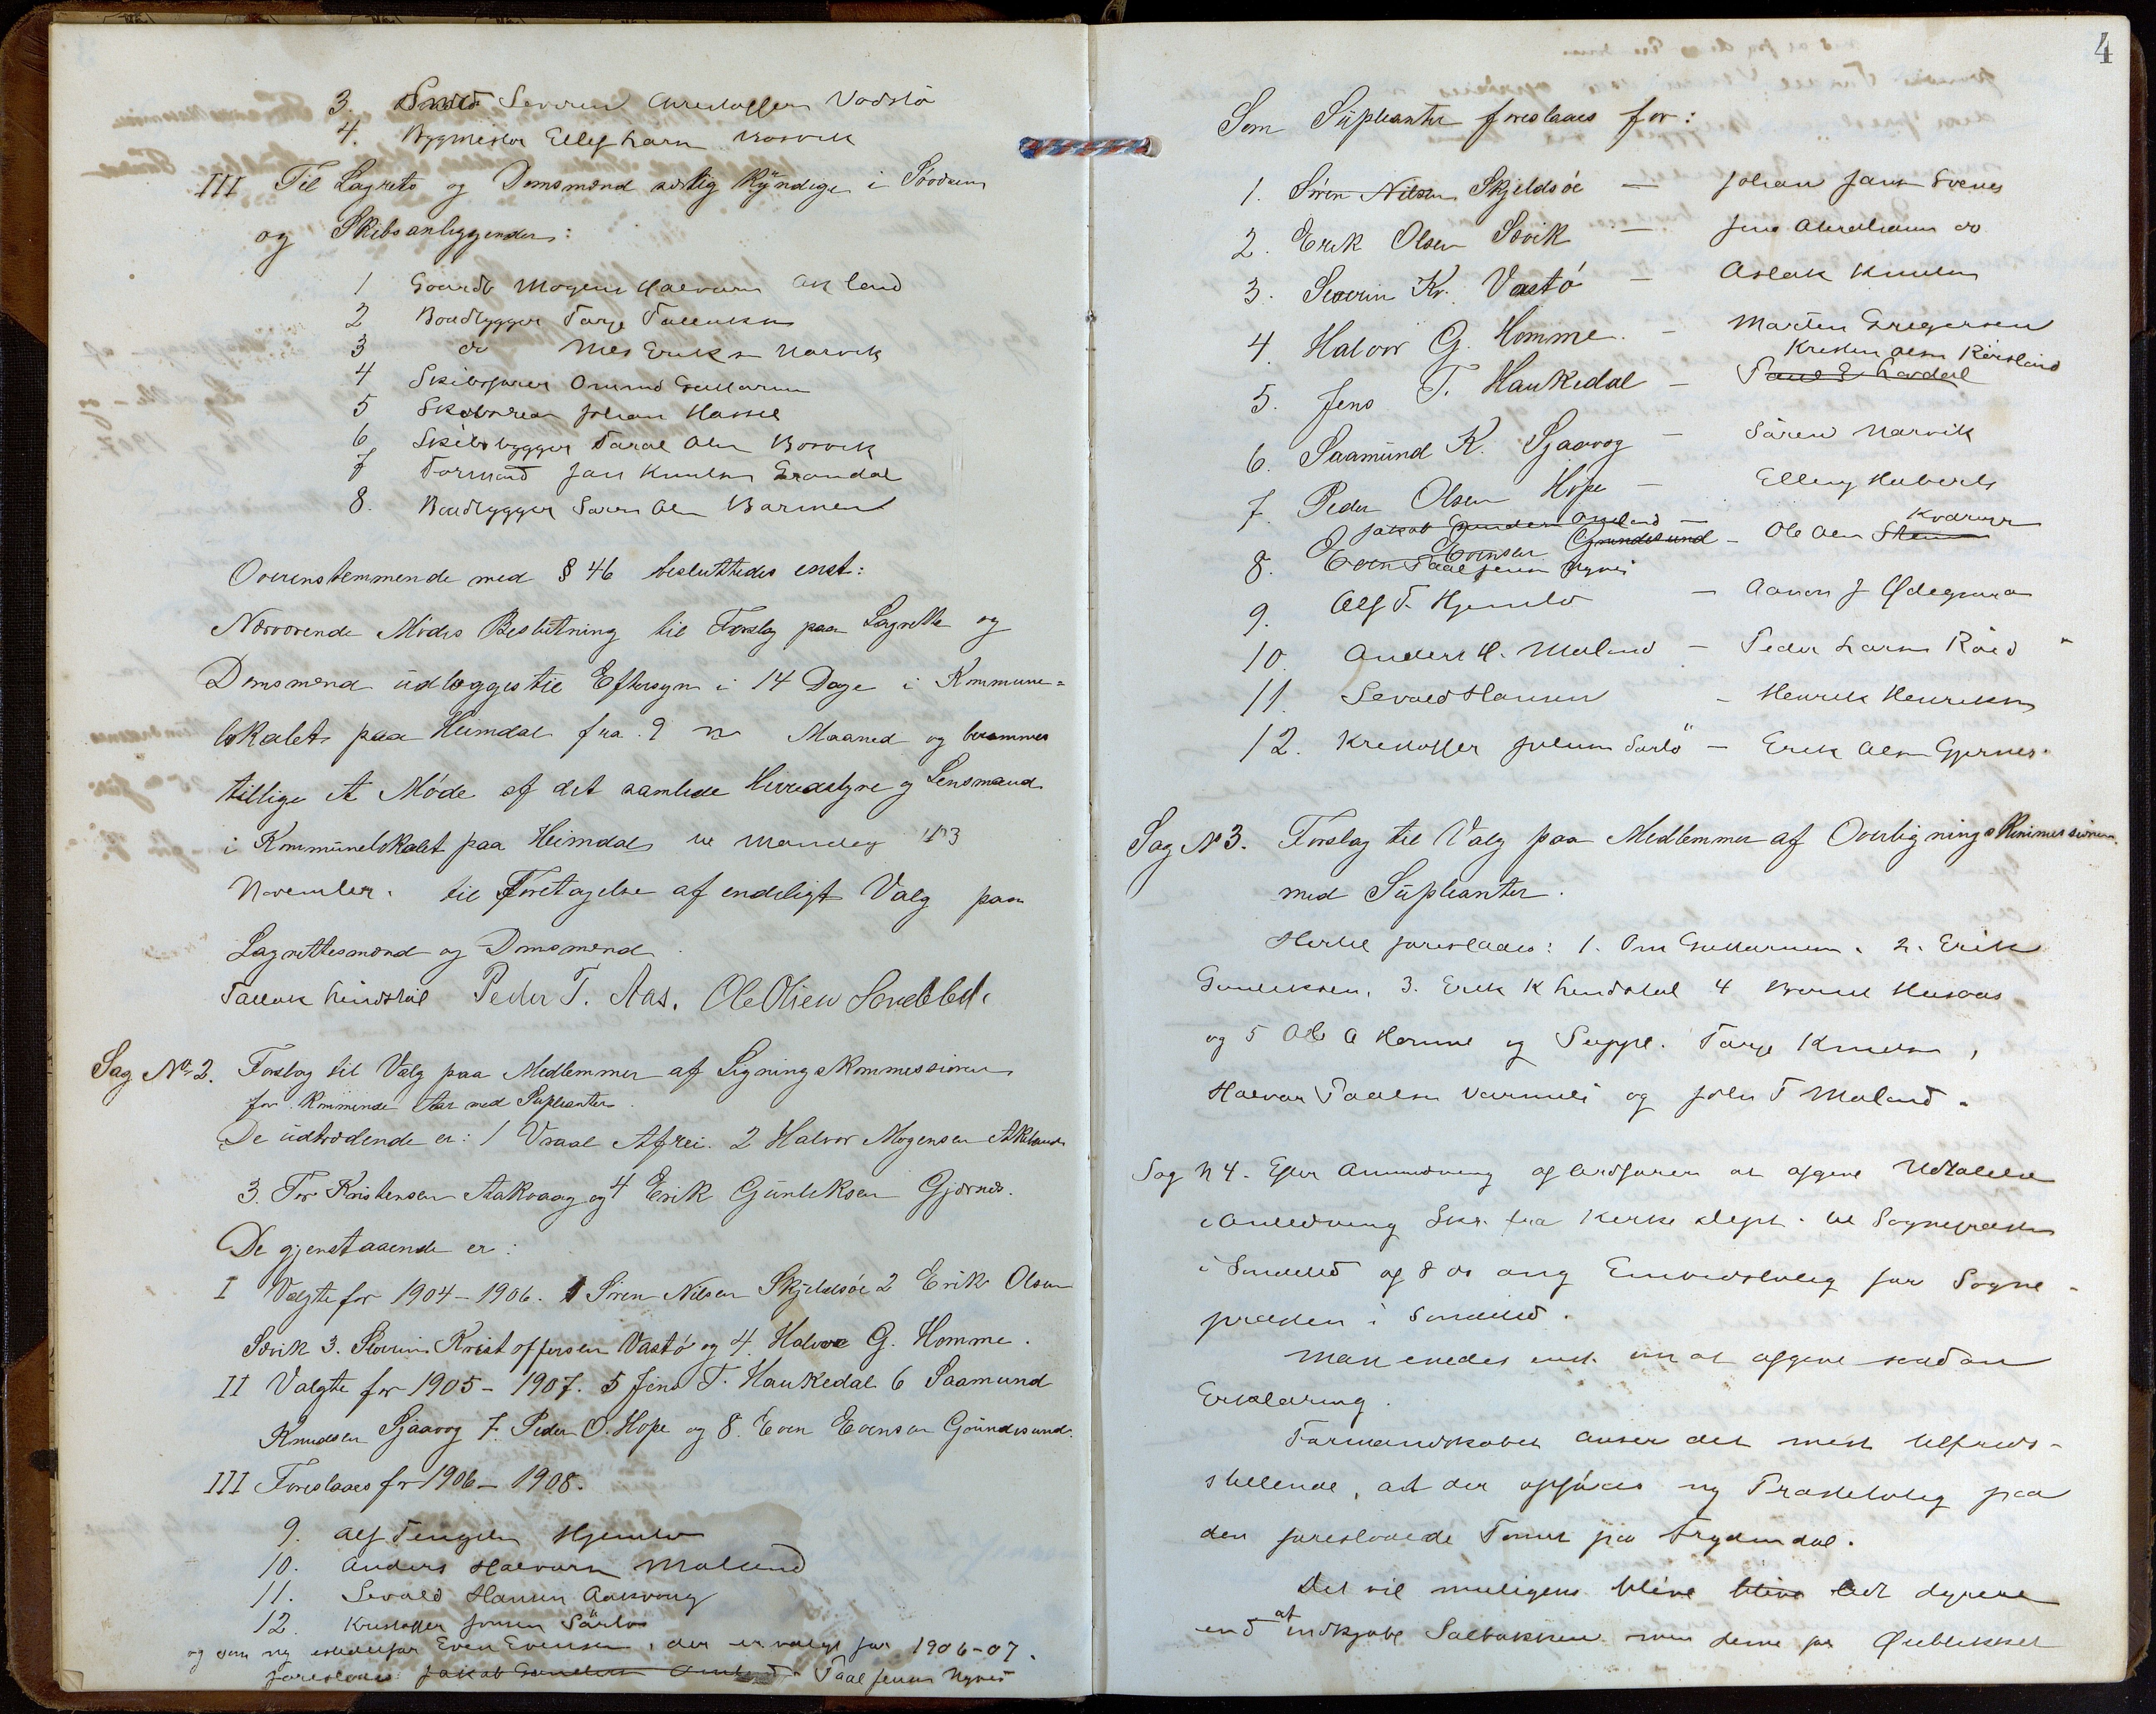 3. Severin Christoffersen Vodstø
4. Bygmester Ellef Larsen Bosvik
III Til Lagrets og Domsmænd særlig Kyndige i Søvæsen
og Skibsanliggender:
1 Gaardb Mogens Halvorsen Akland
2 Baadbygger Tarje Tallaksen
3 do Nils Eriksen Narvik
4 Skibsfører Omund Guttormsen
5 Skibsreder Johan Hassel
6 Skibsbygger Taral Olsen Bosvik
7 Formand Jan Knutsen Grandal
8. Baadbygger Søren Olsen Barmen
Overenstemmende med § 46 besluttedes enst:
Nærværende Mødes Beslutning til Forslag paa Lagrette og
Domsmænd udlægges til Eftersyn i 14 Dage i Kommune=
lokalet paa Heimdal fra 9 Maaned og berammes
tillige et Møde af det samlede Herredstyre og Lensmand
i Kommunelokalet paa Heimdal til Mandag 13
November. til Foretagelse af endeligt Valg paa
Lagrettesmænd og Domsmænd
Tallak Lindstøl Peder T. Aas. Ole Olsen Søndeled.
Sag No 2. Forslag til Valg paa Medlemmer af Ligningskommissionen
for kommende Aar med Supleanter.
De udtrædende er: 1 Vraal Afrei. 2 Halvor Mogensen Akland
3. Tor Kristensen Aakvaag og 4 Erik Gunleksen Gjernes.
De gjenstaaende er:
I Valgte for 1904-1906. 1 Søren Nilsen Skjeldsøe 2 Erik Olsen
Søvik 3. Severin Kristoffersen Vastø og 4. Halvor G. Homme.
II Valgte for 1905-1907. 5 Jens T. Haukedal 6 Saamund
Knudsen Sjaavog 7. Peder O. Hope og 8. Even Evensen Grundesund.
III Foreslaaes for 1906-1908.
9. Alf Hjemlo
10. Anders Halvorsen Moland
11. Sevald Hansen Aakvaag
12. Kristoffer Jensen Sørbø
og som ny istedetfor Even Evensen, der er valgt for 1906-07.
foreslaaes: Jakob Gundersen Paal Jensen Nynes
4
Som Supleanter foreslaaes for:
1. Søren Nilsen Skjeldsøe — Johan Jansen
2. Erik Olsen Søvik — Jens Abrahamsen do
3. Severin Kr. Vastø — Aslak Knutsen
4. Halvor G. Homme. — Marten Gregersen
Kristen Olsen Rørstand
5. Jens T. Haukedal — Lardal
6. Saamund K. Sjaavog — Søren Narvik
7. Peder Olsen Hope — Elling Huberts
Jakob Gundersen
8. Even Evensen Grundesund — Ole Olsen
Paal Jensen Nynes
9. Alf T. Hjemlo — Aanon J Ødegaard
10. Anders H. Moland — Peder Larsen Røed
11. Sevald Hansen — Henrik Henriksen
12. Kristoffer Jensen Sørbø — Erik Olsen Gjernes.
Sag No 3. Forslag til Valg paa Medlemmer af Overligningskommissionen
med Supleanter.
Hertil foreslaaes: 1. Om Guttormsen. 2. Erik
Gunleksen, 3. Erik K Lindstøl 4 Husaas
og 5 Ole A Homme og Suppl. Tarje Knutsen,
Halvor Paalsen Varmli og John T Moland.
Sag N 4. Efter Anmodning af Ordføren at afgive Udtalelse
i Anledning Skr. fra Kirke dept. til Sognepresten
i Søndeled af 8 ds ang Embedsbolig for Sogne-
presten i Søndeled.
Man enedes enst. om at afgive saadan
Erklæring.
Formandskabet anser det mest tilfreds-
stillende, at der opføres ny Prestebolig paa
den foreslaaede Tomt paa Frydendal.
Det vil muligens blive blive lidt dyrere
end at indkjøbe Solbakken men denne for Øieblikket